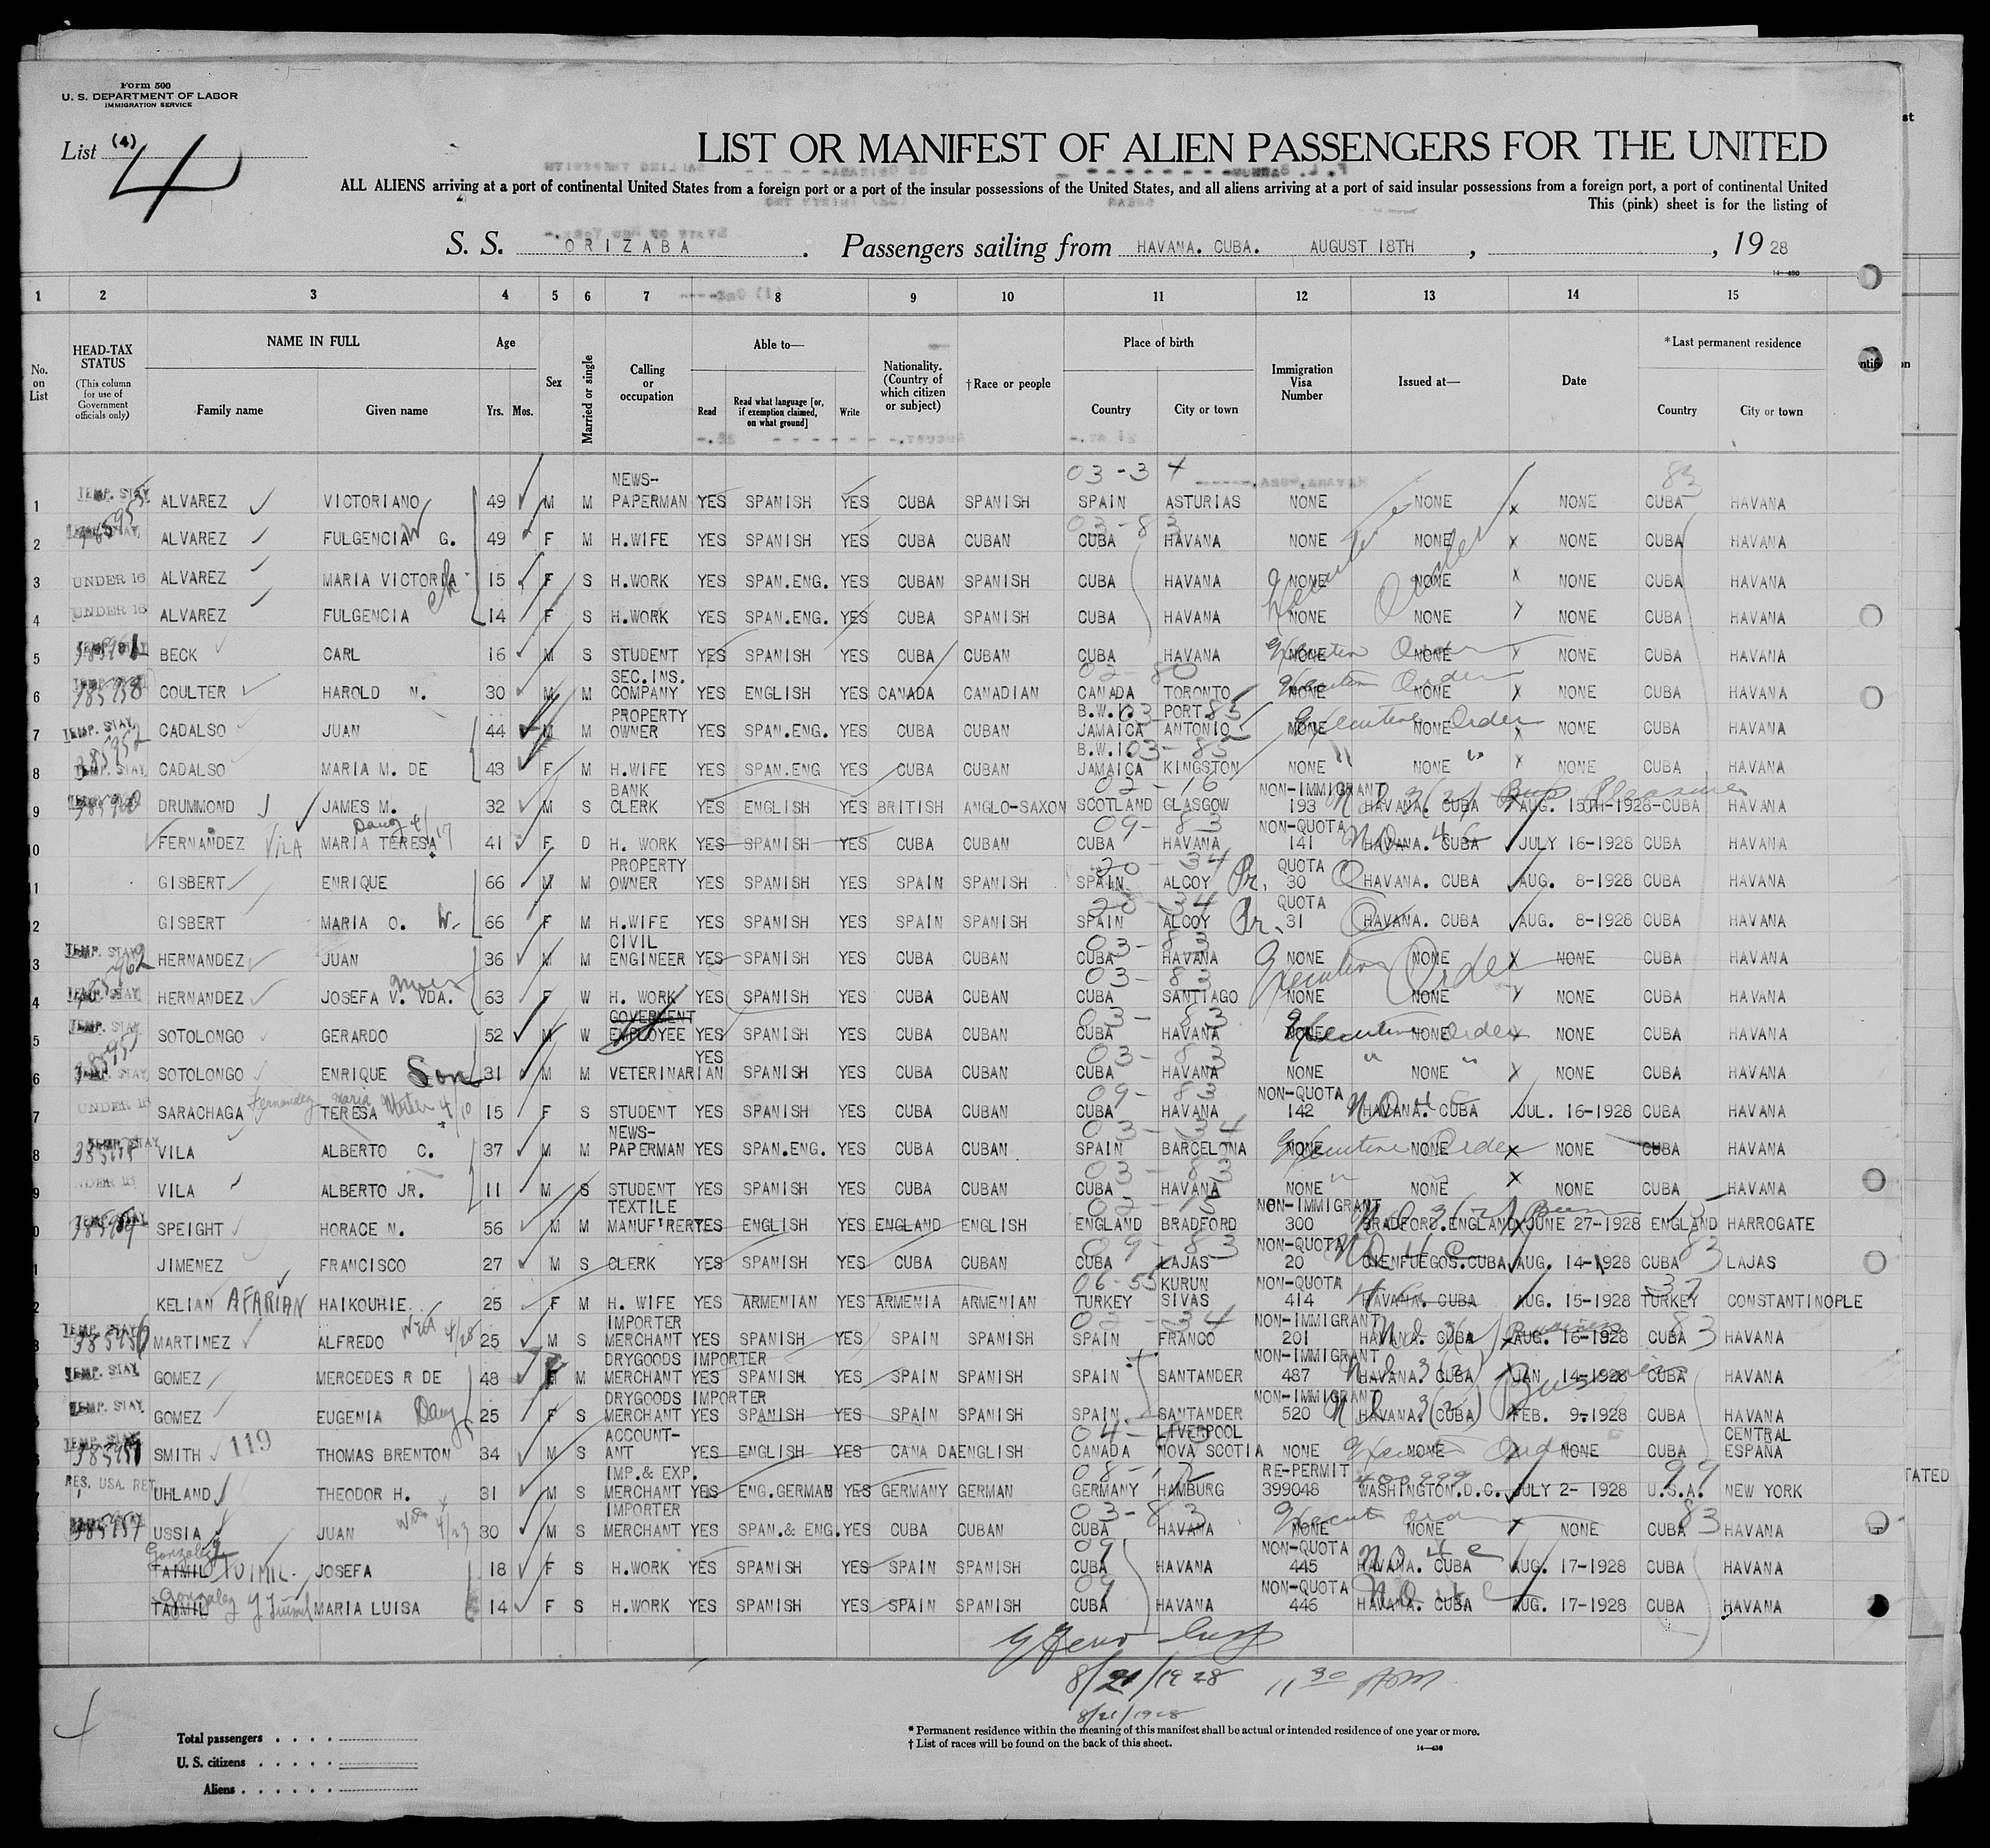 Form 500
U. S. DEPARTMENT OF LABOR
IMMIGRATION SERVICE
List (4) 4
LIST OR MANIFEST OF ALIEN PASSENGERS FOR THE UNITED
ALL ALIENS arriving at a port of continental United States from a foreign port or a port of the insular possessions of the United States, and all aliens arriving at a port of said insular possessions from a foreign port, a port of continental United
This (pink) sheet is for the listing of
S. S. ORIZABA. Passengers sailing from HAVANA. CUBA. AUGUST 18TH, , 19 28
14-430
1 2 3 4 5 6 7 8 9 10 11 12 13 14 15
No. on List
HEAD-TAX STATUS (This column for use of Government officials only)
NAME IN FULL Family name Given name
Age Yrs. Mos.
Sex
Married or single
Calling or occupation
Able to— Read Read what language [or, if exemption claimed, on what ground] Write
Nationality. (Country of which citizen or subject)
†Race or people
Place of birth Country City or town
Immigration Visa Number
Issued at—
Date
*Last permanent residence Country City or town
1 TEMP. STAY ALVAREZ VICTORIANO 49 M M NEWS-PAPERMAN YES SPANISH YES CUBA SPANISH 03-34 SPAIN ASTURIAS NONE NONE NONE 83 CUBA HAVANA
2 ALVAREZ FULGENCIA G. W 49 F M H.WIFE YES SPANISH YES CUBA CUBAN 03-83 CUBA HAVANA NONE NONE NONE CUBA HAVANA
3 UNDER 16 ALVAREZ MARIA VICTORIA 15 F S H.WORK YES SPAN.ENG. YES CUBAN SPANISH CUBA HAVANA NONE NONE NONE CUBA HAVANA
4 UNDER 16 ALVAREZ FULGENCIA ch 14 F S H.WORK YES SPAN.ENG. YES CUBA SPANISH CUBA HAVANA NONE NONE NONE CUBA HAVANA
Executive Order
5 BECK CARL 16 M S STUDENT YES SPANISH YES CUBA CUBAN CUBA HAVANA NONE NONE Executive Order NONE CUBA HAVANA
6 385958 COULTER HAROLD N. 30 M M SEC.INS. COMPANY YES ENGLISH YES CANADA CANADIAN 02-80 CANADA TORONTO NONE NONE Executive Order NONE CUBA HAVANA
7 TEMP. STAY 385952 CADALSO JUAN 44 M M PROPERTY OWNER YES SPAN.ENG. YES CUBA CUBAN B.W.I. 03-85 JAMAICA PORT ANTONIO NONE NONE Executive Order NONE CUBA HAVANA
8 TEMP. STAY CADALSO MARIA M. DE 43 F M H.WIFE YES SPAN.ENG YES CUBA CUBAN B.W.I. 03-85 JAMAICA KINGSTON NONE " NONE " NONE CUBA HAVANA
9 385960 DRUMMOND JAMES M. 32 M S BANK CLERK YES ENGLISH YES BRITISH ANGLO-SAXON 02-16 SCOTLAND GLASGOW NON-IMMIGRANT 193 HAVANA. CUBA AUG. 15TH-1928-CUBA HAVANA
0 FERNANDEZ VILA MARIA TERESA Daug 4/17 41 F D H. WORK YES SPANISH YES CUBA CUBAN 09-83 CUBA HAVANA NON-QUOTA 141 HAVANA. CUBA JULY 16-1928 CUBA HAVANA
1 GISBERT ENRIQUE 66 M M PROPERTY OWNER YES SPANISH YES SPAIN SPANISH 20-34 SPAIN ALCOY Pr. QUOTA 30 HAVANA. CUBA AUG. 8-1928 CUBA HAVANA
2 GISBERT MARIA O. W- 66 F M H.WIFE YES SPANISH YES SPAIN SPANISH 20-34 SPAIN ALCOY Pr. QUOTA 31 HAVANA. CUBA AUG. 8-1928 CUBA HAVANA
3 TEMP. STAY HERNANDEZ JUAN 36 M M CIVIL ENGINEER YES SPANISH YES CUBA CUBAN 03-83 CUBA HAVANA NONE NONE Executive Order NONE CUBA HAVANA
4 HERNANDEZ JOSEFA V. VDA. 63 F W H. WORK YES SPANISH YES CUBA CUBAN 03-83 CUBA SANTIAGO NONE NONE NONE CUBA HAVANA
5 TEMP. STAY SOTOLONGO GERARDO 52 M W GOVERMENT EMPLOYEE YES SPANISH YES CUBA CUBAN 03-83 CUBA HAVANA NONE NONE Executive Order NONE CUBA HAVANA
6 TEMP. STAY SOTOLONGO ENRIQUE Son 31 M M VETERINARIAN YES SPANISH YES CUBA CUBAN 03-83 CUBA HAVANA NONE " NONE " NONE CUBA HAVANA
7 UNDER 16 SARACHAGA Fernandez TERESA Maria 4/10 15 F S STUDENT YES SPANISH YES CUBA CUBAN 09-83 CUBA HAVANA NON-QUOTA 142 HAVANA. CUBA JUL. 16-1928 CUBA HAVANA
8 TEMP. STAY VILA ALBERTO C. 37 M M NEWS-PAPERMAN YES SPAN.ENG. YES CUBA CUBAN 03-34 SPAIN BARCELONA NONE NONE Executive Order NONE CUBA HAVANA
9 UNDER 16 VILA ALBERTO JR. 11 M S STUDENT YES SPANISH YES CUBA CUBAN 03-83 CUBA HAVANA NONE " NONE " NONE CUBA HAVANA
0 385959 SPEIGHT HORACE N. 56 M M TEXTILE MANUF'RER YES ENGLISH YES ENGLAND ENGLISH 02-15 ENGLAND BRADFORD NON-IMMIGRANT 300 BRADFORD.ENGLAND JUNE 27-1928 ENGLAND 15 HARROGATE
1 JIMENEZ FRANCISCO 27 M S CLERK YES SPANISH YES CUBA CUBAN 09-83 CUBA LAJAS NON-QUOTA 20 CIENFUEGOS.CUBA AUG. 14-1928 CUBA 83 LAJAS
2 KELIAN AFARIAN HAIKOUHIE 25 F M H. WIFE YES ARMENIAN YES ARMENIA ARMENIAN 06-55 TURKEY KURUN SIVAS NON-QUOTA 414 HAVANA. CUBA AUG. 15-1928 TURKEY 37 CONSTANTINOPLE
3 TEMP. STAY 385956 MARTINEZ ALFREDO 4/28 25 M S IMPORTER MERCHANT YES SPANISH YES SPAIN SPANISH 02-34 SPAIN FRANCO NON-IMMIGRANT 201 HAVANA. CUBA Business AUG. 16-1928 CUBA 83 HAVANA
4 TEMP. STAY GOMEZ MERCEDES R DE 48 F M DRYGOODS IMPORTER MERCHANT YES SPANISH YES SPAIN SPANISH SPAIN SANTANDER NON-IMMIGRANT 487 HAVANA. CUBA 3(2) JAN 14-1928 CUBA HAVANA
5 TEMP. STAY GOMEZ EUGENIA Daug 25 F S DRYGOODS IMPORTER MERCHANT YES SPANISH YES SPAIN SPANISH SPAIN SANTANDER NON-IMMIGRANT 520 HAVANA. CUBA 3(2) Business FEB. 9-1928 CUBA HAVANA
6 TEMP. STAY 385951 SMITH 119 THOMAS BRENTON 34 M S ACCOUNT-ANT YES ENGLISH YES CANADA ENGLISH CANADA LIVERPOOL NOVA SCOTIA NONE NONE NONE CUBA CENTRAL ESPAÑA
7 RES. USA. RET. UHLAND THEODOR H. 31 M S IMP.& EXP. MERCHANT YES ENG.GERMAN YES GERMANY GERMAN GERMANY HAMBURG RE-PERMIT 399048 WASHINGTON.D.C. JULY 2- 1928 U.S.A. 99 NEW YORK
8 385957 USSIA JUAN 4/23 30 M S IMPORTER MERCHANT YES SPAN.& ENG. YES CUBA CUBAN 03-83 CUBA HAVANA NONE NONE NONE CUBA 83 HAVANA
Gonzalez TAIMIL TUIMIL. JOSEFA 18 F S H.WORK YES SPANISH YES SPAIN SPANISH 09 CUBA HAVANA NON-QUOTA 445 HAVANA. CUBA AUG. 17-1928 CUBA HAVANA
Gonzalez y TAIMIL MARIA LUISA 14 F S H.WORK YES SPANISH YES SPAIN SPANISH 09 CUBA HAVANA NON-QUOTA 446 HAVANA. CUBA AUG. 17-1928 CUBA HAVANA
8/21/1928 11 30 AM
8/21/1928
Total passengers
U. S. citizens
Aliens
* Permanent residence within the meaning of this manifest shall be actual or intended residence of one year or more.
† List of races will be found on the back of this sheet.
14-430